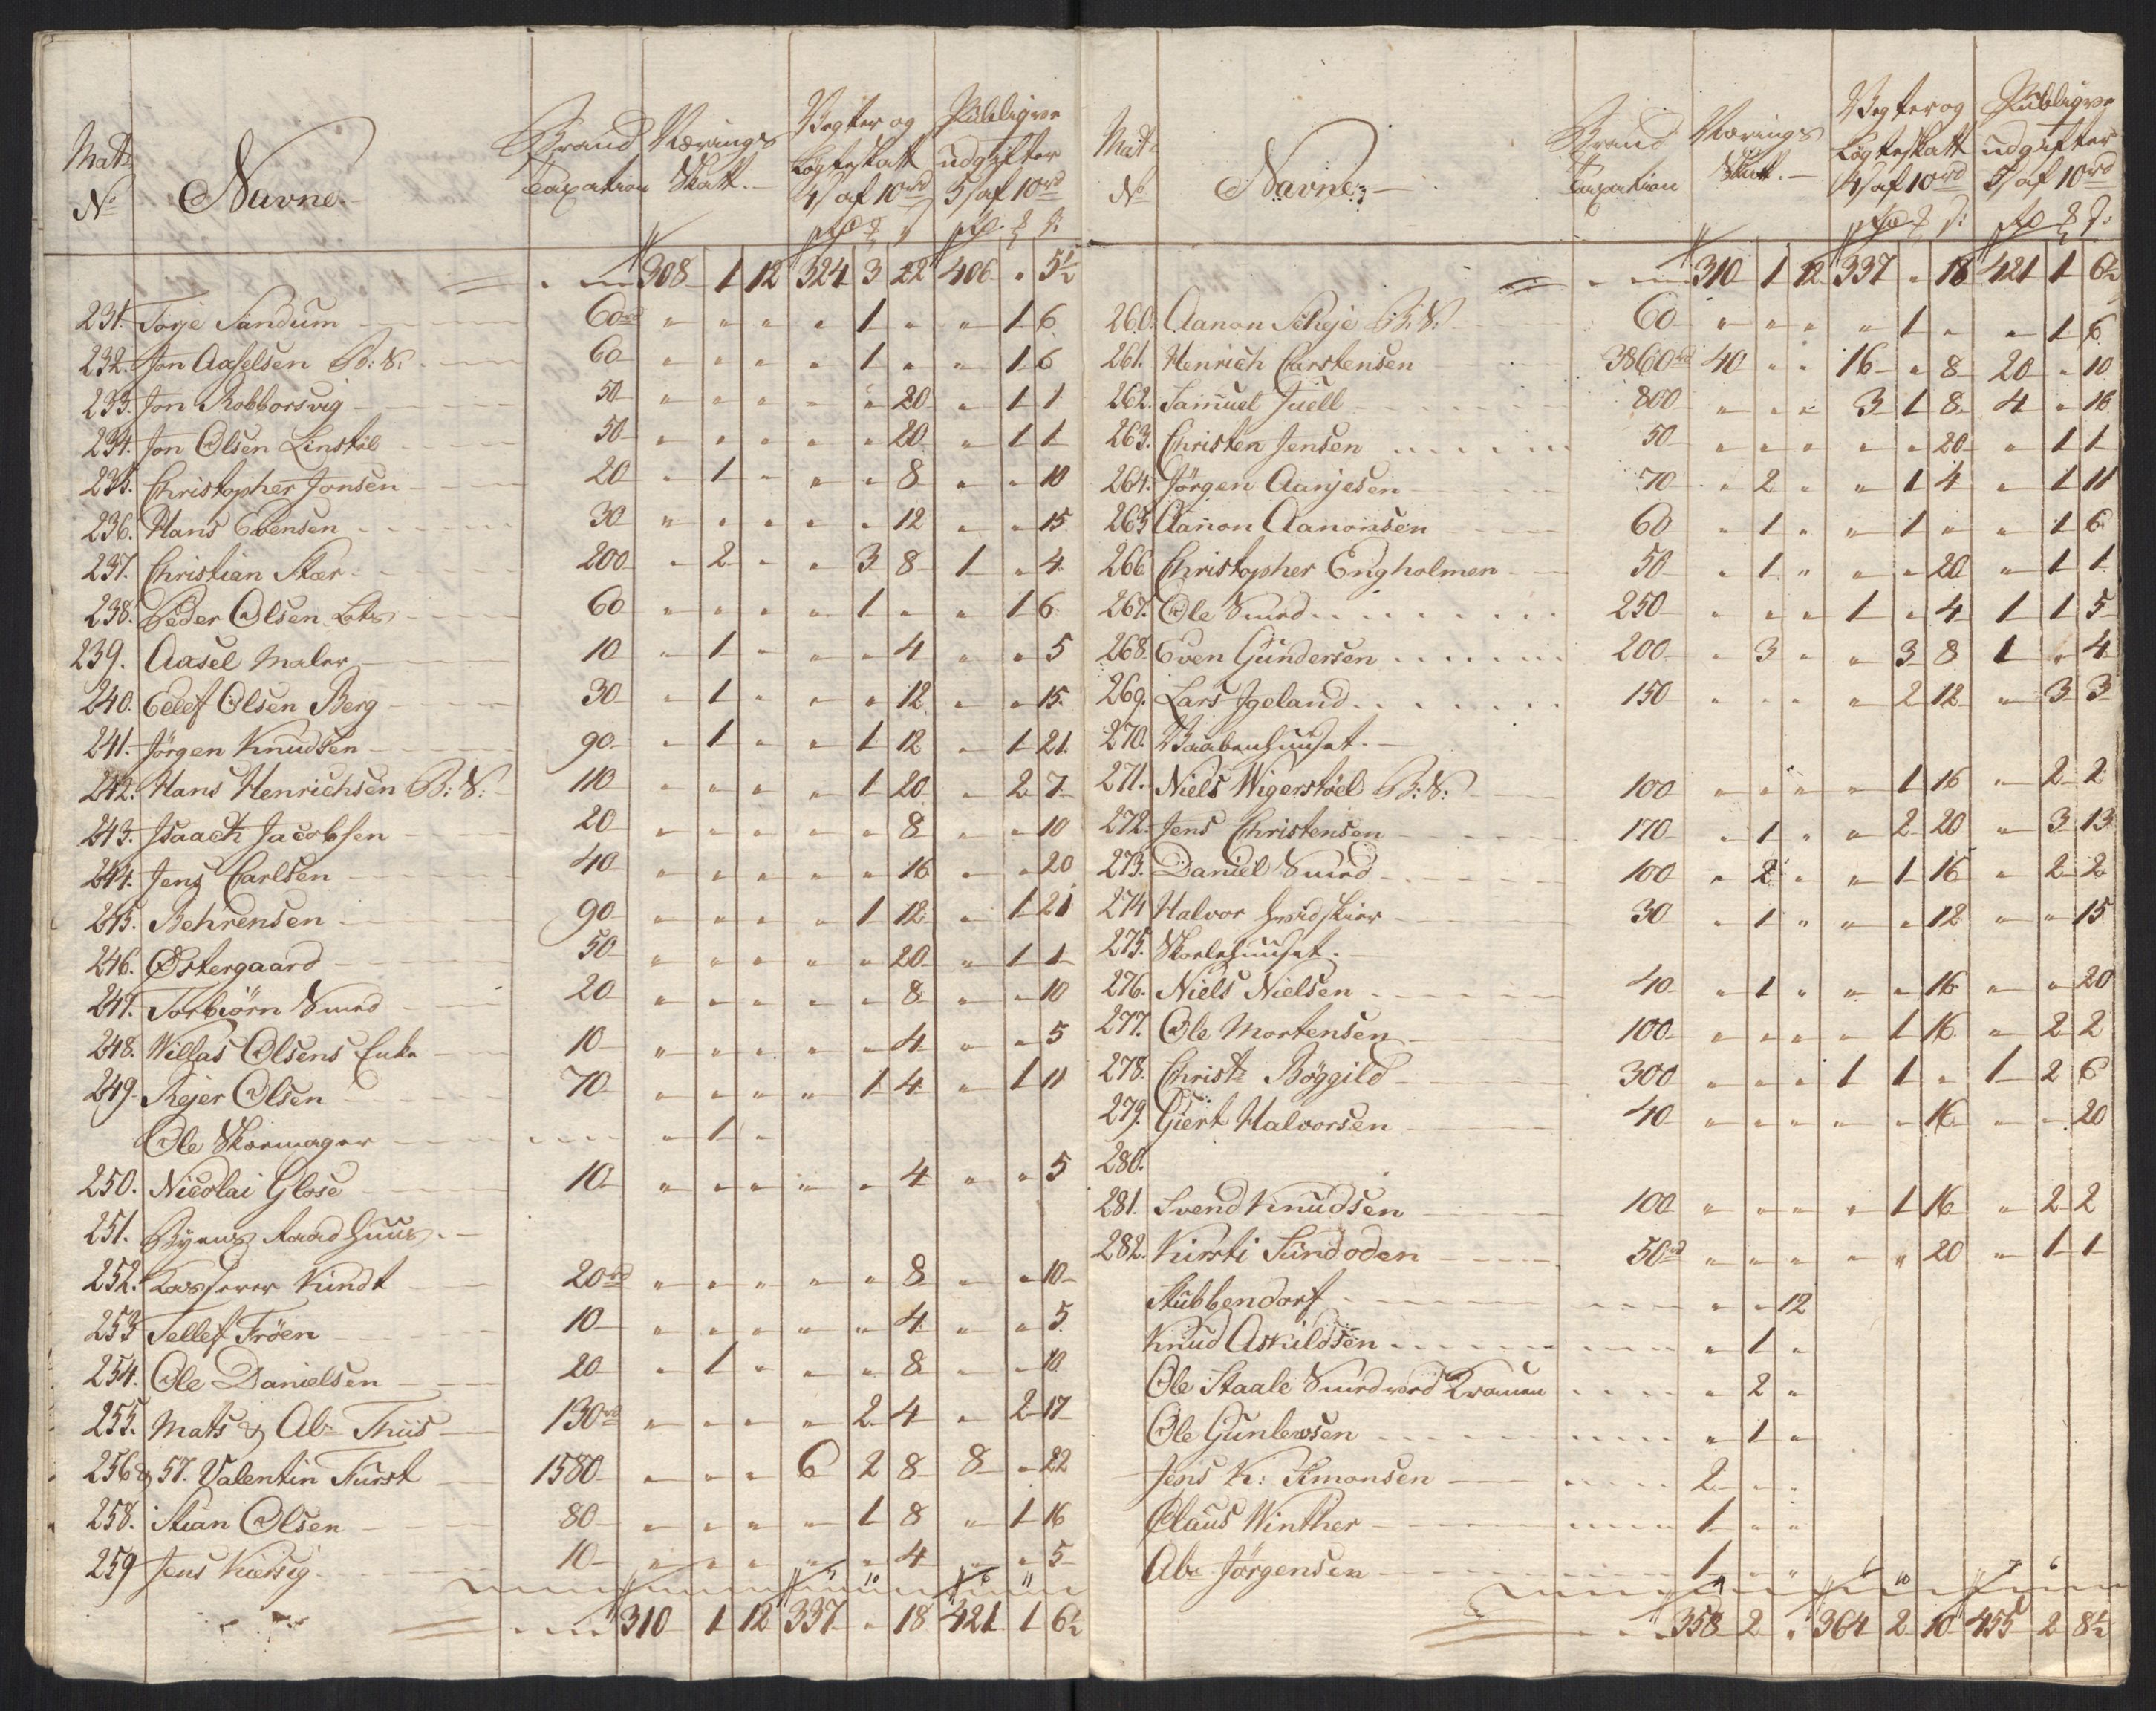 Mat: Navne. Brand Nærings Vegter og Publiqve
Løgteskatt udgifter
No Taxation Skatt. 4 s af 10rd 5 s af 10rd
308 1 12 324 3 22 406 " 5½
231. Torje Sandum 60rd " " " " 1 " " 1 6
232. Jon Aaselsen B: S: 60 " " " " 1 " " 1 6
233. Jon Robborsvig 50 " " " " " 20 " 1 1
234. Jon Olsen Linstøl 50 " " " " " 20 " 1 1
235. Christopher Jonsen 20 " 1 " " " 8 " " 10
236. Hans Ebensen 30 " " " " " 12 " " 15
237. Christian Skær 200 " 2 " " 3 8 1 " 4
238. Peder Olsen Lots 60 " " " " 1 " " 1 6
239. Aasel Maler 10 " 1 " " " 4 " " 5
240. Eelef Olsen Berg 30 " 1 " " " 12 " " 15
241. Jørgen Knudsen 90 " 1 " " 1 12 " 1 21
242. Hans Henrichsen B: S: 110 " " " " 1 20 " 2 7
243. Isaach Jacobsen 20 " " " " " 8 " " 10
244. Jens Carlsen 40 " " " " " 16 " " 20
245. Behrensen 90 " " " " 1 12 " 1 21
246. Østergaard 50 " " " " " 20 " 1 1
247. Torbiörn Smed 20 " " " " " 8 " " 10
248. Willas Olsens Enke 10 " " " " " 4 " " 5
249. Rejer Olsen 70 " " " " 1 4 " 1 11
Ole Skoemager " 1 "
250. Nicolai Glose 10 " " " " " 4 " " 5
251. Byens Raadhuus.
252. Kasserer Kindt 20rd " " " " " 8 " " 10
253 Tellef Tröen 10 " " " " " 4 " " 5
254. Ole Danielsen 20 " 1 " " " 8 " " 10
255. Mats & Ab: Thiis 130rd " " " " 2 4 " 2 17
256 & 57. Valentin Fürst 1580 " " " 6 2 8 8 " 22
258. Stian Olsen 80 " " " " 1 8 " 1 16
259 Jens Kielsig 10 " " " " " 4 " " 5
310 1 12 337 " 18 421 1 6½
Mat: Navne. Brand Nærings Vegter og Publiqve
Løgteskatt udgifter
No Taxation Skatt. 4 s af 10rd 5 s af 10rd
310 1 12 337 " 18 421 1 6½
260. Aanon Scheje B: S: 60 " " " " 1 " " 1 6
261. Henrich Carstensen 3860rd 40 " " 16 " 8 20 " 10
262. Samuel Juell 800 " " " 3 1 8 4 " 16
263. Christen Jensen 50 " " " " " 20 " 1 1
264. Jörgen Aanjesen 70 " 2 " " 1 4 " 1 11
265 Aanon Aanonsen 60 " 1 " " 1 " " 1 6
266 Christopher Engholmen 50 " 1 " " " 20 " 1 1
267. Ole Smed 250 " " " 1 " 4 1 1 5
268. Even Gundersen 200 " 3 " " 3 8 1 " 4
269. Lars Igeland 150 " " " " 2 12 " 3 3
270. Vaabenhuuset.
271. Niels Wigerstöel B: S: 100 " " " " 1 16 " 2 2
272. Jens Christensen 170 " 1 " " 2 20 " 3 13
273. Daniel Smed 100 " 2 " " 1 16 " 2 2
274 Halvor 30 " 1 " " " 12 " " 15
275. Skolehuuset.
276. Niels Nielsen 40 " 1 " " " 16 " " 20
277. Ole Mortensen 100 " " " " 1 16 " 2 2
278. Christ: Böggild 300 " " " 1 1 " 1 2 6
279. Giert Halvorsen 40 " " " " " 16 " " 20
280.
281. Svend Knudsen 100 " " " " 1 16 " 2 2
282. Kirsti Sundoden 50rd " " " " " 20 " 1 1
Stubbendorf " " 12
Knud Askildsen " 1 "
Ole Staale Smed ved Kranen " 2 "
Ole Gunlewsen " 1 "
Jens K: Simonsen 2 " "
Claus Winther 1 " "
Ab: Jörgensen 1 " "
358 2 " 364 2 10 455 2 8½